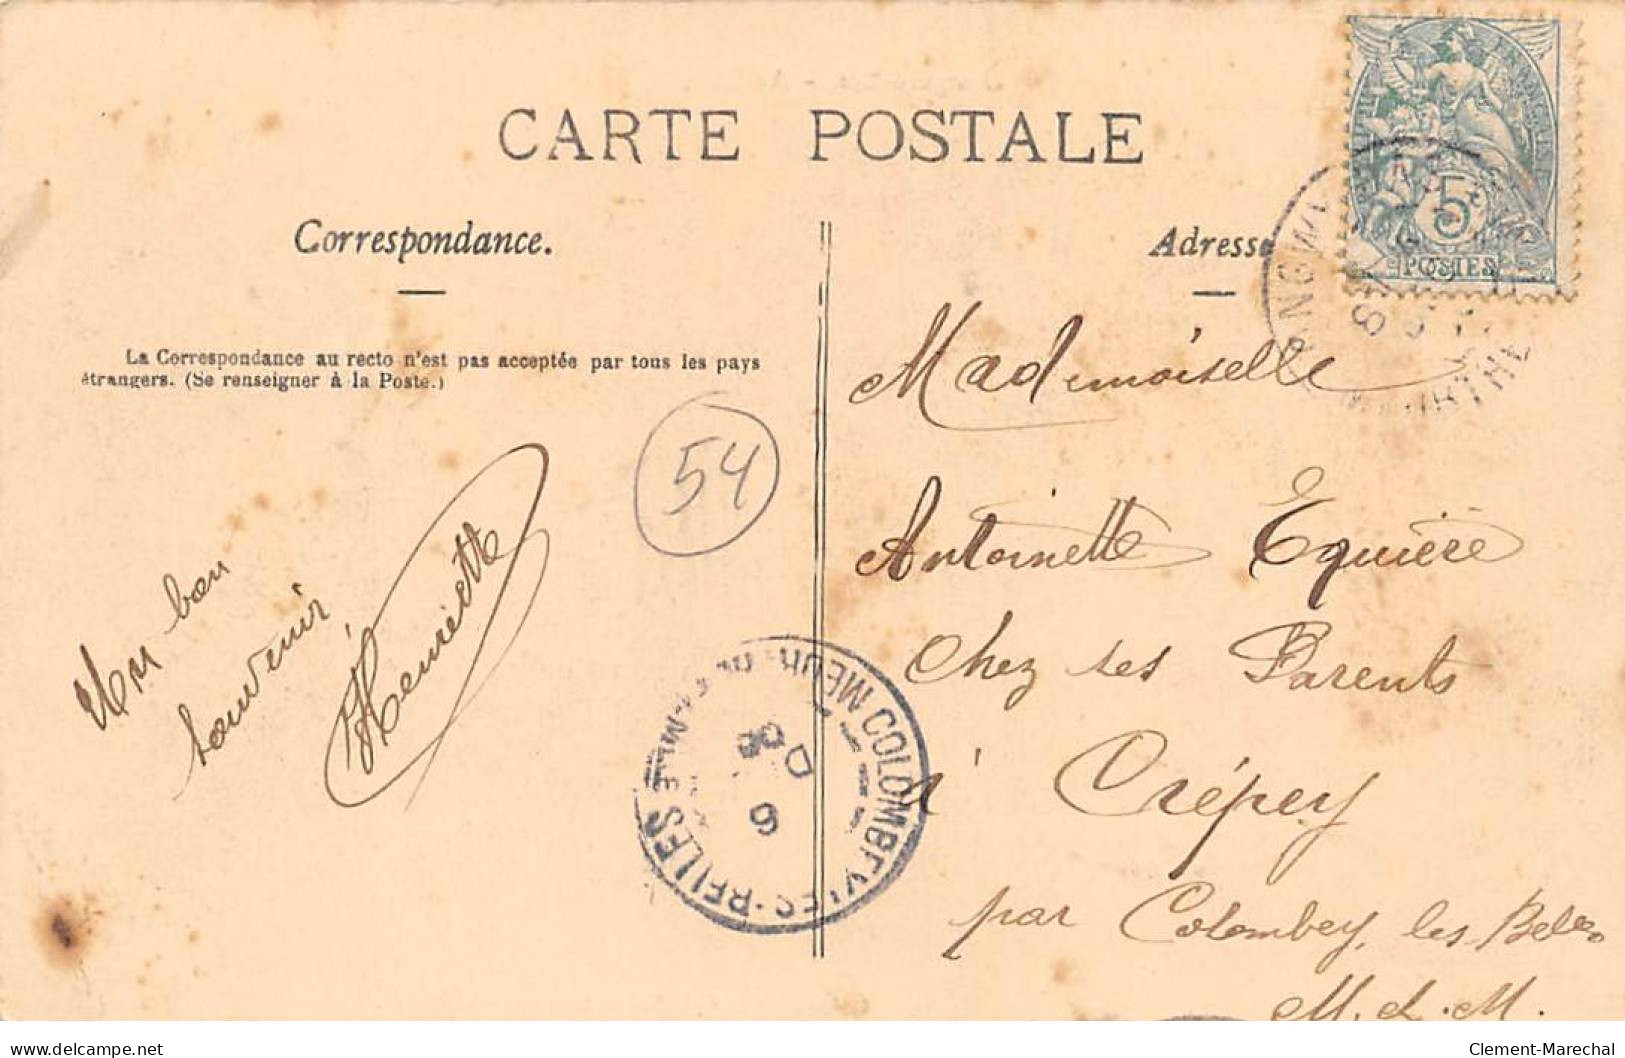 CARTE POSTALE
Correspondance.
La Correspondance au recto n'est pas acceptée par tous les pays
étrangers. (Se renseigner à la Poste.)
54
Un bon
souvenir
Henriette
COLOMBEY-LES-BELLES
9
D
Adresse
5
POSTES
Mademoiselle
Antoinette Equière
Chez ses Parents
à Crépey
par Colombey, les Belles
M. &. M.
delcampe.net
Clement-Marechal